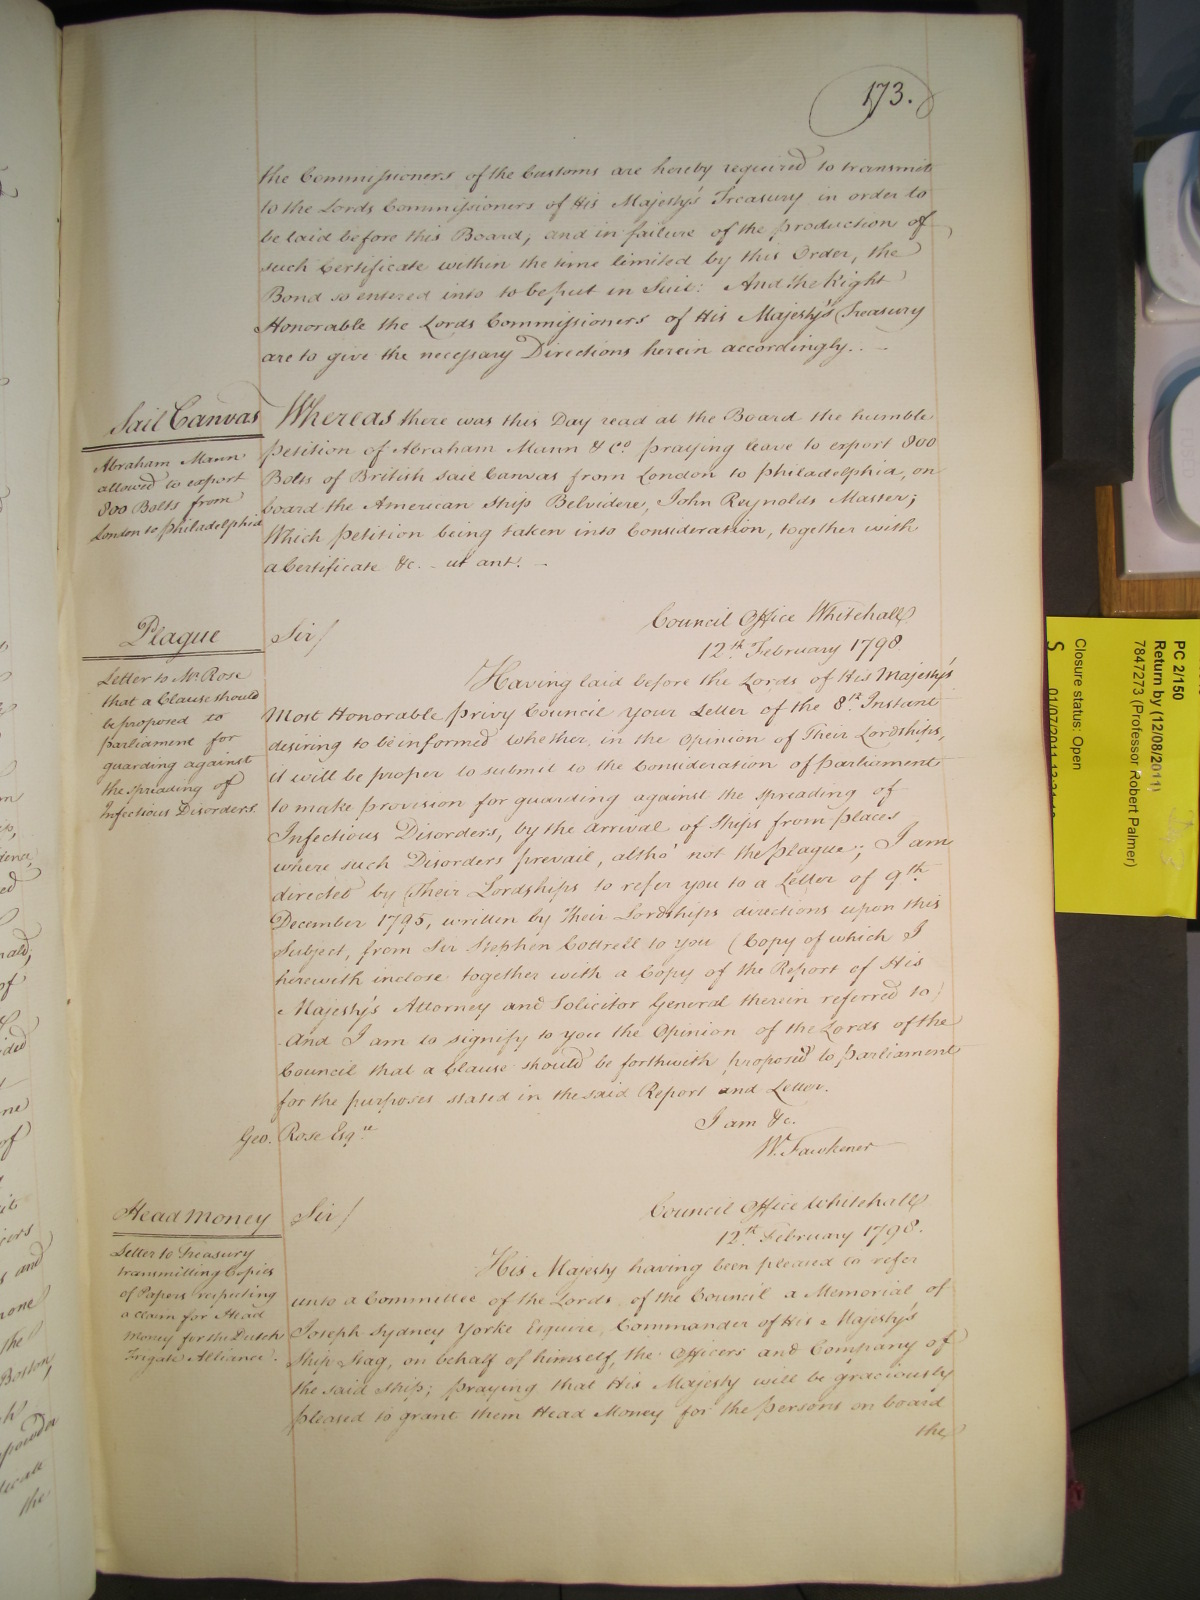 173.
the Commissioners of the Customs are hereby required to transmit
to the Lords Commissioners of His Majesty's Treasury in order to
be laid before this Board, and in failure of the production of
such Certificate within the time limited by this Order, the
Bond so entered into to be put in Suit: And the Right
Honorable the Lords Commissioners of His Majesty's Treasury
are to give the necessary Directions herein accordingly. . -
Sail Canvas
Abraham Mann
allowed to export
800 Bolts from
London to Philadelphia
Whereas there was this Day read at the Board the humble
Petition of Abraham Mann & Co. praying leave to export 800
Bolts of British Sail Canvas from London to Philadelphia, on
board the American Ship Belvidere, John Reynolds Master;
Which Petition being taken into Consideration, together with
a Certificate &c. - ut ant. -
Plague
Letter to Mr. Rose
that a Clause should
be proposed to
Parliament for
guarding against
the spreading of
Infectious Disorders.
Sir/
Council Office Whitehall
12th February 1798
Having laid before the Lords of His Majesty's
Most Honorable Privy Council your Letter of the 8th Instant
desiring to be informed whether, in the Opinion of Their Lordships,
it will be proper to submit to the Consideration of Parliament
to make provision for guarding against the spreading of
Infectious Disorders, by the arrival of Ships from places
where such Disorders prevail, altho' not the Plague; I am
directed by Their Lordships to refer you to a Letter of 9th
December 1795, written by Their Lordships directions upon this
Subject, from Sir Stephen Cottrell to you (Copy of which I
herewith inclose together with a Copy of the Report of His
Majesty's Attorney and Solicitor General therein referred to)
And I am to signify to you the Opinion of the Lords of the
Council that a Clause should be forthwith proposed to Parliament
for the purposes stated in the said Report and Letter.
I am &c.
Geo. Rose Esqre
W. Fawkener
Head Money
Letter to Treasury
transmitting Copies
of Papers respecting
a claim for Head
Money for the Dutch
Frigate Alliance.
Sir/
Council Office Whitehall
12th February 1798.
His Majesty having been pleased to refer
unto a Committee of the Lords of the Council a Memorial of
Joseph Sydney Yorke Esquire, Commander of His Majesty's
Ship Stag, on behalf of himself, the Officers and Company of
the said Ship; praying that His Majesty will be graciously
pleased to grant them Head Money for the Persons on board
the
PC 2/150
Return by (12/08/2011)
7847273 (Professor Robert Palmer)
Closure status: Open
S